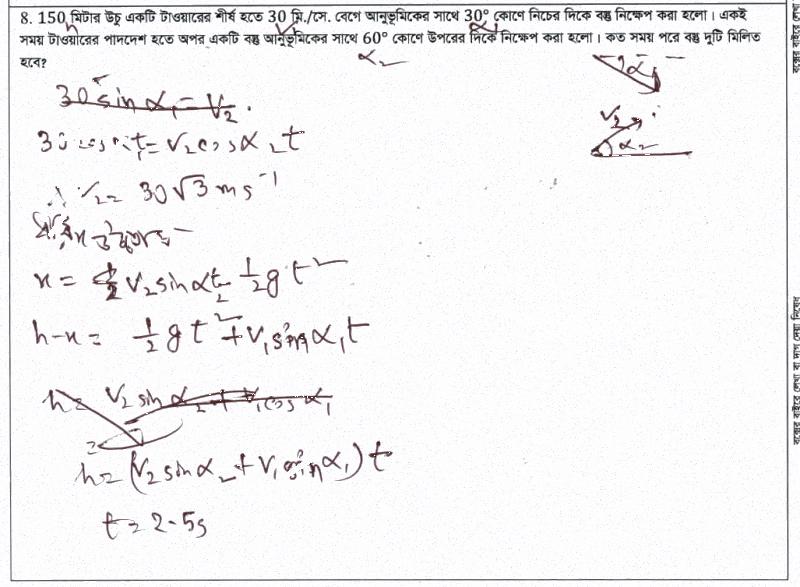 8. 150 মিটার উঁচু একটি টাওয়ারের শীর্ষ হতে 30 মি./সে. বেগে আনুভূমিকের সাথে 30° কোণে নিচের দিকে বস্তু নিক্ষেপ করা হলো। একই
h v₁ α₁
সময় টাওয়ারের পাদদেশ হতে অপর একটি বস্তু আনুভূমিকের সাথে 60° কোণে উপরের দিকে নিক্ষেপ করা হলো। কত সময় পরে বস্তু দুটি মিলিত
α₂
হবে?
α₁
30 sin α₁ = V₂.
V₂
α₂
30 cos α₁ t = V₂ cos α₂ t
∴ V₂ = 30√3 ms⁻¹
x =  V₂ sin α₂ t - ½ g t²
h-x = ½ g t² + V₁ sin α₁ t
h = V₂ sin α₂ + V₁ cos α₁
h = (V₂ sin α₂ + V₁ sin α₁) t
t = 2.5s
বক্সের বাইরে লেখা বা দাগ দেয়া নিষেধ